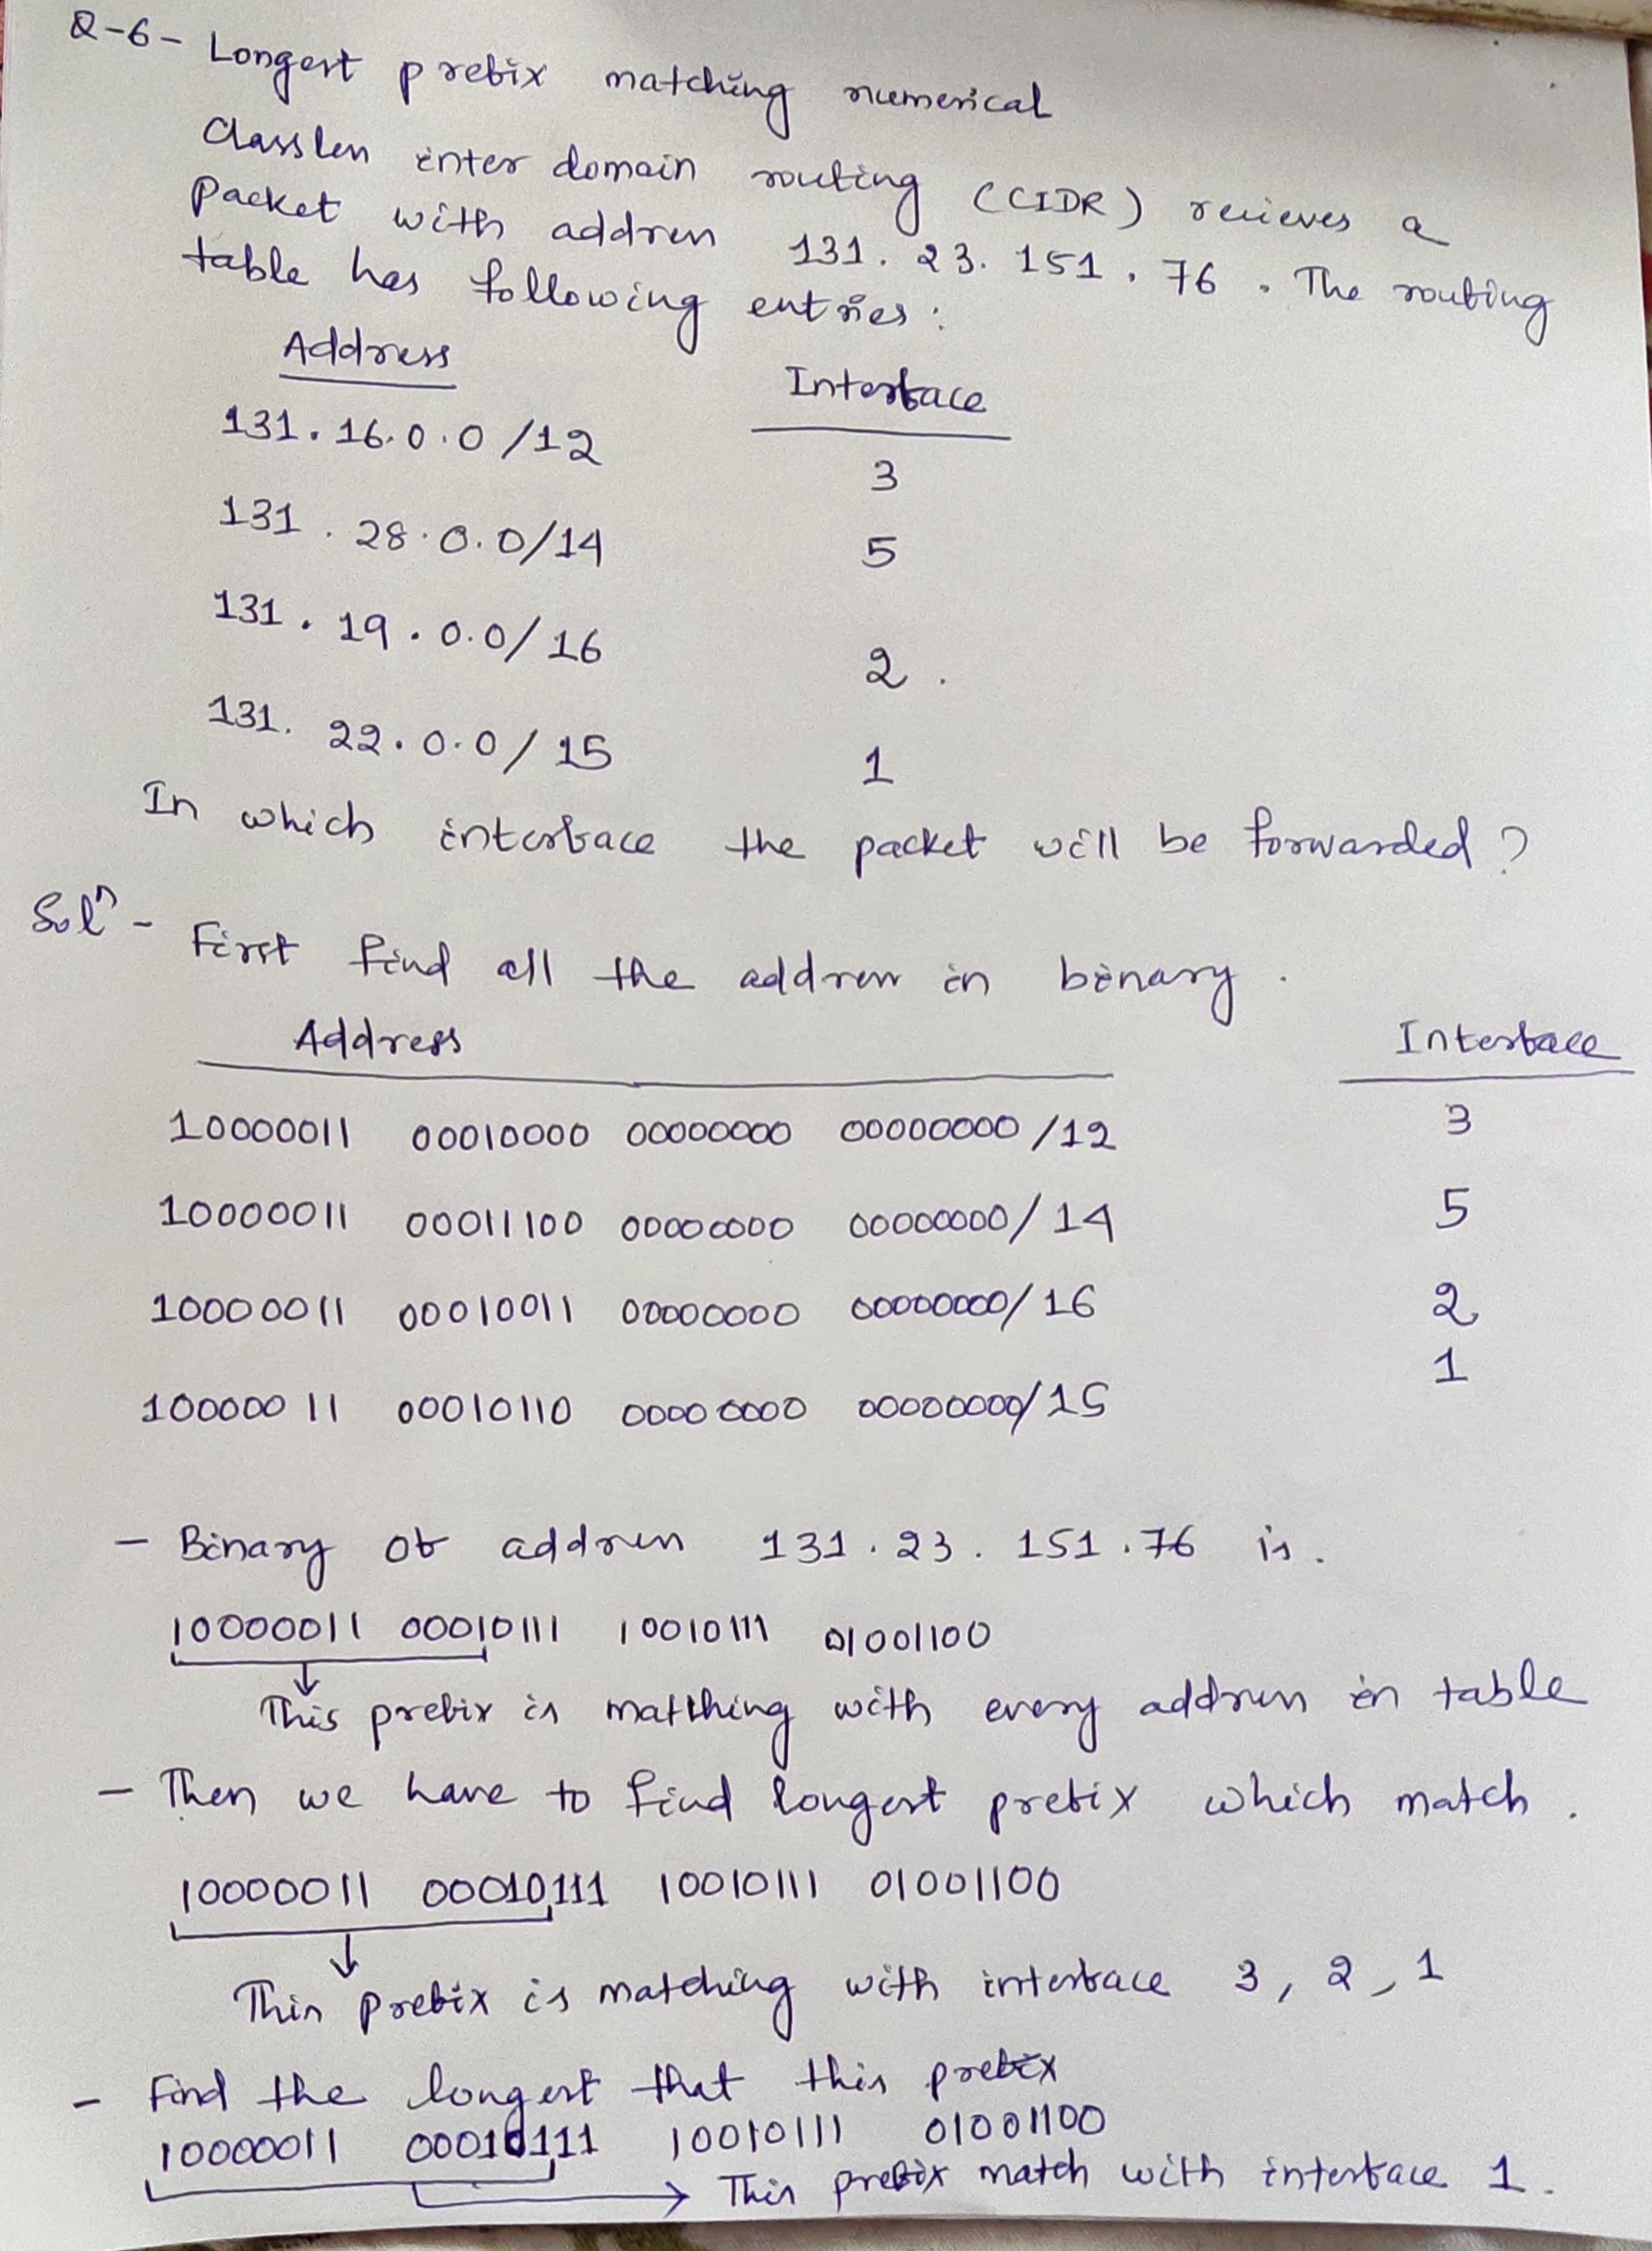 Q-6- Longest prefix matching numerical
Classless inter domain routing (CIDR) recieves a
packet with address 131.23.151.76. The routing
table has following entries:
Address Interface
131.16.0.0/12 3
131.28.0.0/14 5
131.19.0.0/16 2.
131.22.0.0/15 1
In which interface the packet will be forwarded?
Solⁿ- First find all the address in binary.
Address Interface
10000011 00010000 00000000 00000000/12 3
10000011 00011100 00000000 00000000/14 5
10000011 00010011 00000000 00000000/16 2
10000011 00010110 00000000 00000000/15 1
- Binary of address 131.23.151.76 is.
10000011 00010111 10010111 01001100
This prefix is matthing with every address in table
- Then we have to find longest prefix which match.
10000011 00010111 10010111 01001100
This prefix is matching with interface 3, 2, 1
- Find the longest that this prefix
10000011 00010111 10010111 01001100
This prefix match with interface 1.